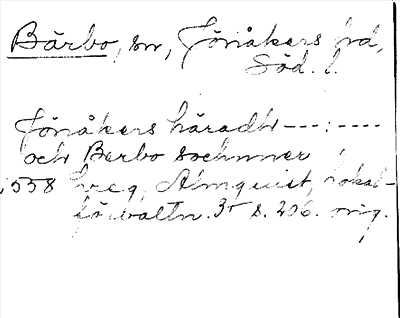 Bärbo, sn, Jönåkers hrd,
Söd. l.
Jönåkers häradh ---:----
och Berbo sochnner
1558 hreg, Almquist, Lokal-
förvaltn. 3 s. 206. orig.